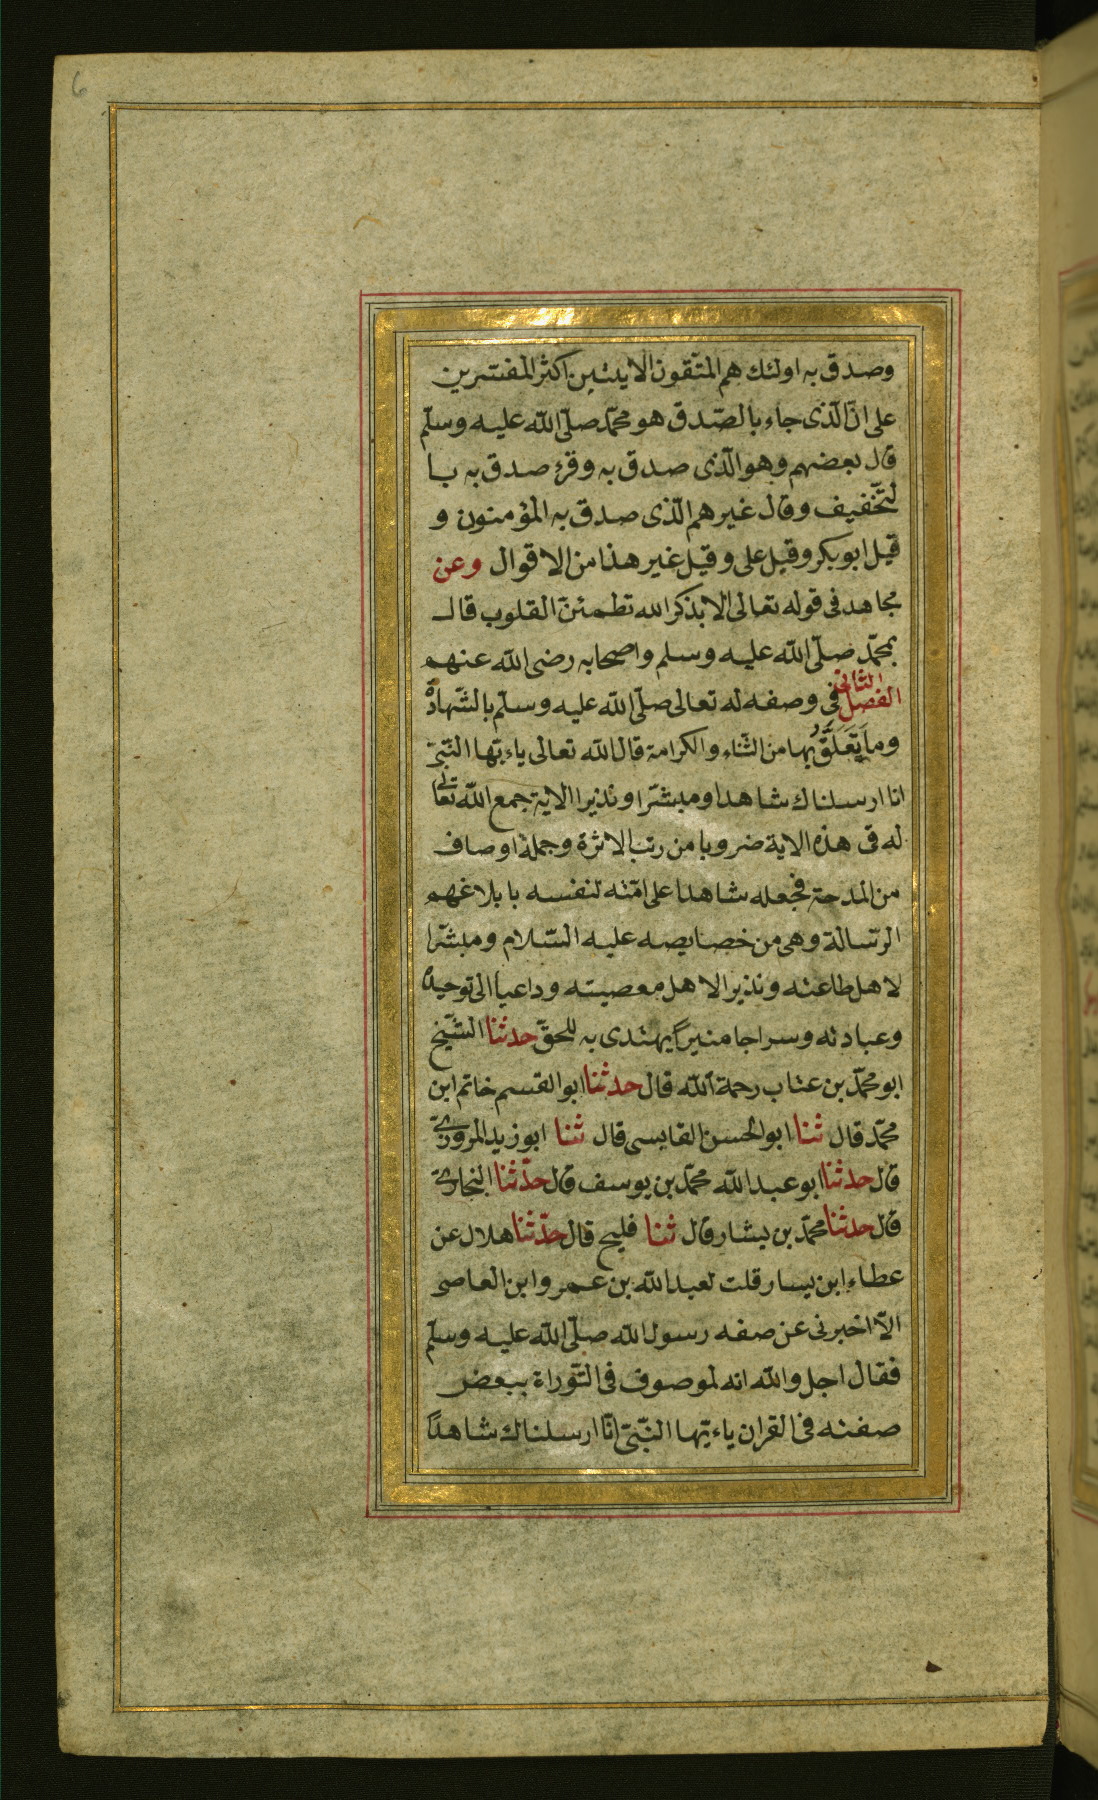 6
وصدق به اولئك هم المتقون الايتين اكثر المفسرين
على انّ الّذى جاء بالصّدق هو محمّد صلّى اللّه عليه وسلّم
قال بعضهم وهو الّذى صدق به وقرئ صدق به با
لتّخفيف وقال غيرهم الّذى صدق به المؤمنون و
قيل ابو بكر وقيل على وقيل غير هذا من الاقوال وعن
مجاهد فى قوله تعالى الا بذكر الله تطمئنّ القلوب قال
بمحمّد صلّى اللّه عليه وسلم واصحابه رضى اللّه عنهم
الفصل الثانى فى وصفه له تعالى صلّى اللّه عليه وسلّم بالشّهادة
وما يَتَعَلَّقُ بها من الثّناء والكرامة قال اللّه تعالى ياءيّها النّبىّ
انا ارسلناك شاهدا ومبشّرا ونذيرا الاية جمع اللّه تعالى
له فى هذه الاية ضروبا من رتب الاثرة وجملة اوصاف
من المدحة فجعله شاهدا على امّته لنفسه بابلاغهم
الرّسالة وهى من خصايصه عليه السّلام ومبشّرا
لاهل طاعته ونذيرا لاهل معصيته وداعيا الى توحيده
وعبادته وسراجا منيرا يهتدى به للحقّ حدثنا الشّيخ
ابو محمّد بن عتاب رحمة اللّه قال حدثنا ابو القسم خاتم ابن
محمّد قال ثنا ابو الحسن القابسى قال ثنا ابو زيد المروزىّ
قال حدثنا ابو عبد اللّه محمّد بن يوسف قال حدّثنا البخارىّ
قال حدثنا محمّد بن بشار قال ثنا فليح قال حدّثنا هلال عن
عطاء ابن يسار قلت لعبد اللّه بن عمرو ابن العاصى
الاّ اخبرنى عن صفه رسول اللّه صلّى اللّه عليه وسلّم
فقال اجل واللّه انه لموصوف فى التّوراة ببعض
صفته فى القران ياءيّها النّبىّ انّا ارسلناك شاهدًا